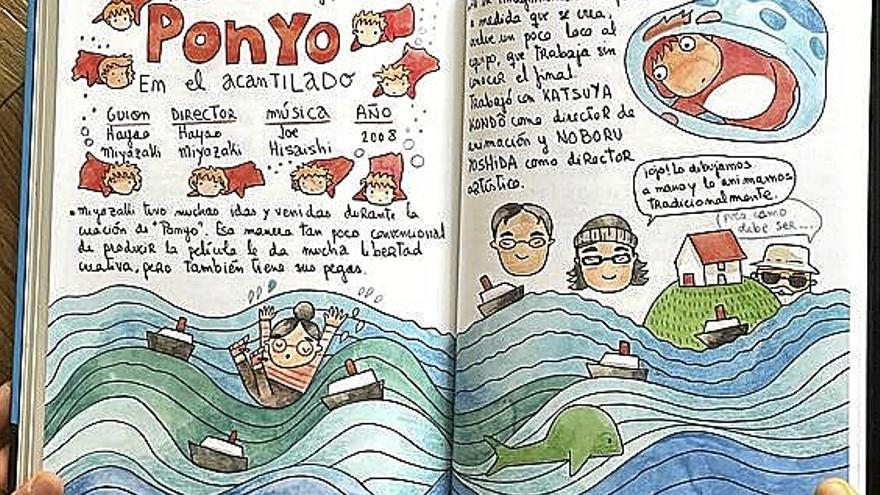 Ponyo
En el acantilado
GUION DIRECTOR MÚSICA AÑO
Hayao Hayao Joe 2008
Miyazaki Miyazaki Hisaishi
• Miyazaki tuvo muchas idas y venidas durante la
creación de "Ponyo". Esa manera tan poco convencional
de producir la película le da mucha libertad
creativa, pero también tiene sus pegas.
a medida que se crea,
vuelve un poco loco al
equipo, que trabaja sin
conocer el final.
Trabajó con KATSUYA
KONDO como director de
animación y NOBORU
YOSHIDA como director
artístico.
¡ojo! Lo dibujamos
a mano y lo animamos
tradicionalmente.
(pues como
debe ser...